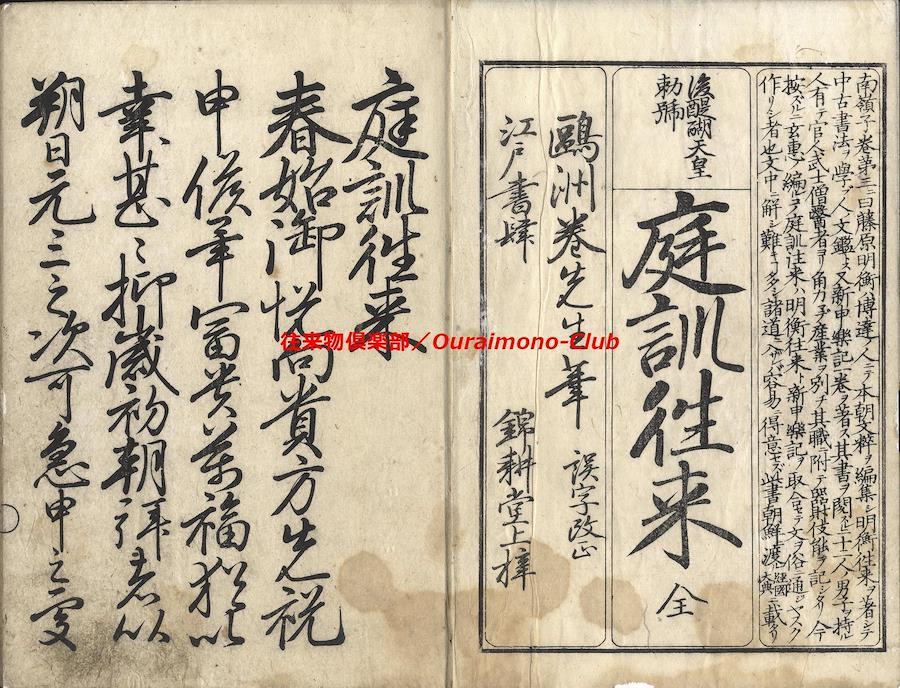 南嶺子巻第三ニ曰藤原明衡ハ博達ノ人ニテ本朝文粋ヲ編集シ明衡往来ヲ著シテ
中古書法ヲ學ブ人ノ文鑑トス又新申樂記一巻ヲ著ス其書ヲ閲スルニ十二人ノ男子ヲ持ル
人有テ官人武士僧醫者ヨリ角力ノ産業ヲ別チ其職ニ附テ器財伎能ヲ記シタリ今
按ズルニ玄惠ノ編レタル庭訓往来ハ明衡往来ト新申樂記ヲ取合セテ文ヲ俗ニ通ジヤスク
作リシ者也文中ニ解シ難キ多シ諸道ニ入ラザレバ容易ニ得意セズ此書朝鮮ニ渡
經國大典ニ載タリ
後醍醐天皇
勅號
庭訓往来 全
鷗洲巻先生筆 誤字改正
江戸書肆 錦耕堂上梓
庭訓往来
春始御悦向貴方先祝
申候畢冨貴萬福猶以
幸甚〻抑歳初朝拝者以
朔日元三之次可急申之處
往来物倶楽部／Ouraimono-Club